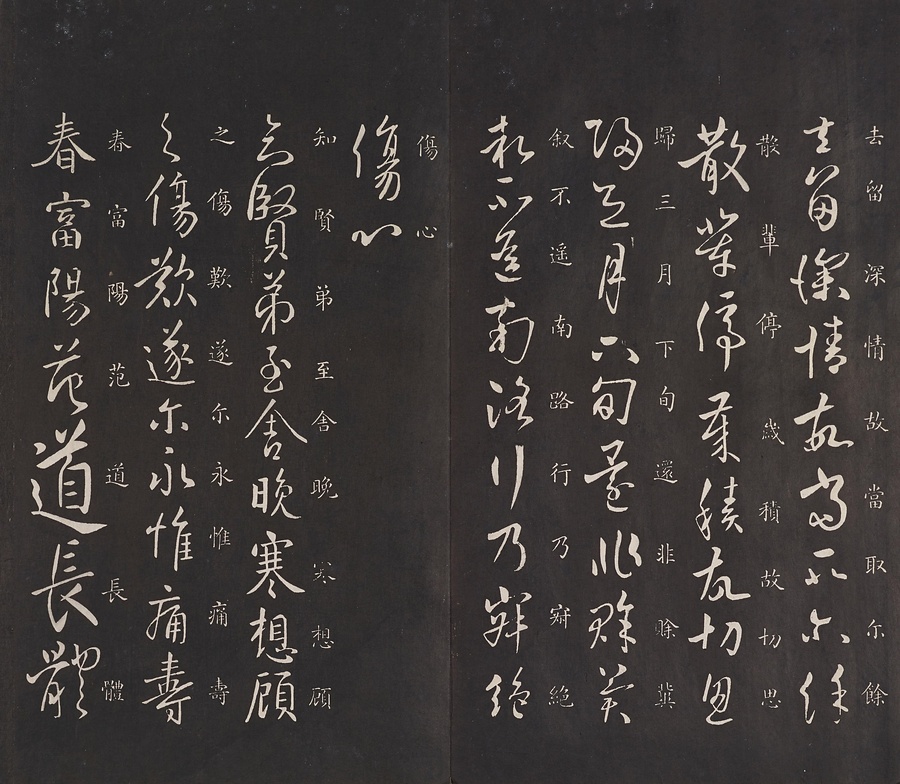 去留深情故當取尔餘
去留深情故當取尔餘
散輩停歲積故切思
散輩停歲積故切思
歸三月下旬還非賒冀
歸三月下旬還非賒冀
叙不遥南路行乃絕
叙不遥南路行乃絕
傷心
傷心
知賢弟至舍晚寒想顧
知賢弟至舍晚寒想顧
之傷歎遂尔永惟痛壽
之傷歎遂尔永惟痛壽
春富陽范道長體
春富陽范道長體